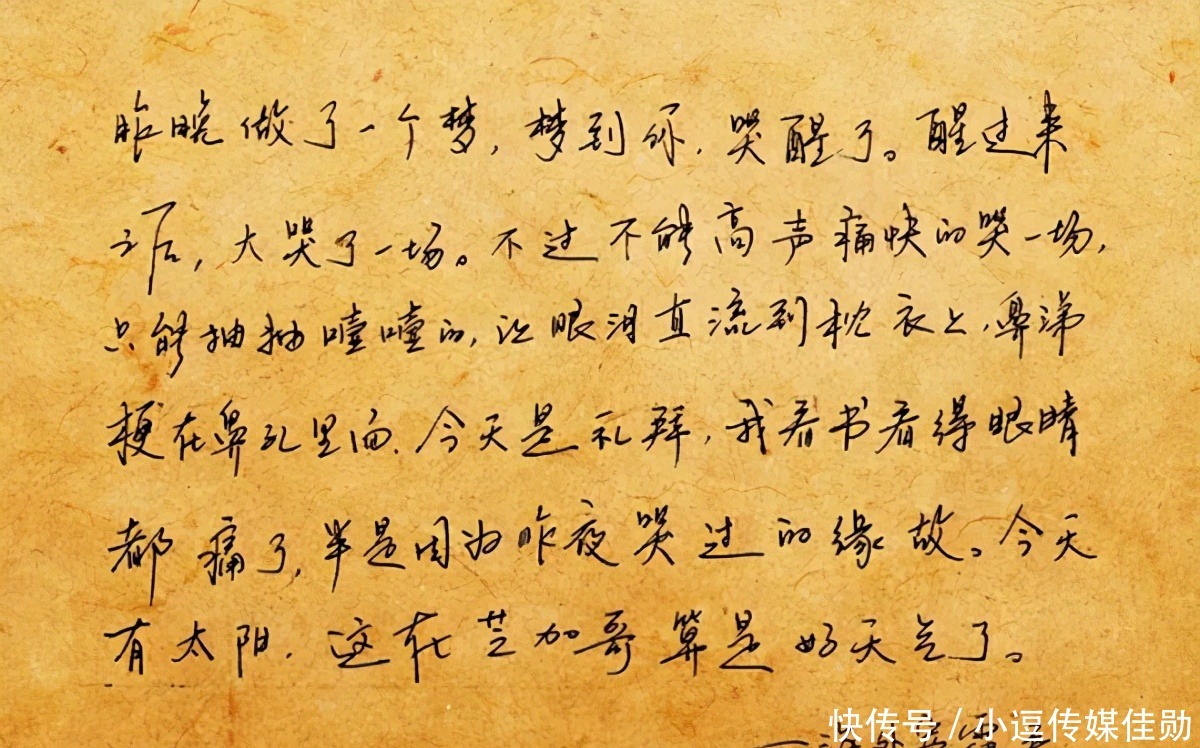 昨晚做了一个梦，梦到你，哭醒了。醒过来
之后，大哭了一场。不过不能高声痛快的哭一场，
只能抽抽噎噎的，让眼泪直流到枕衣上，鼻涕
梗在鼻孔里面。今天是礼拜，我看书看得眼睛
都痛了，半是因为昨夜哭过的缘故。今天
有太阳，这在芝加哥算是好天气了。
快传号／小逗传媒佳勋